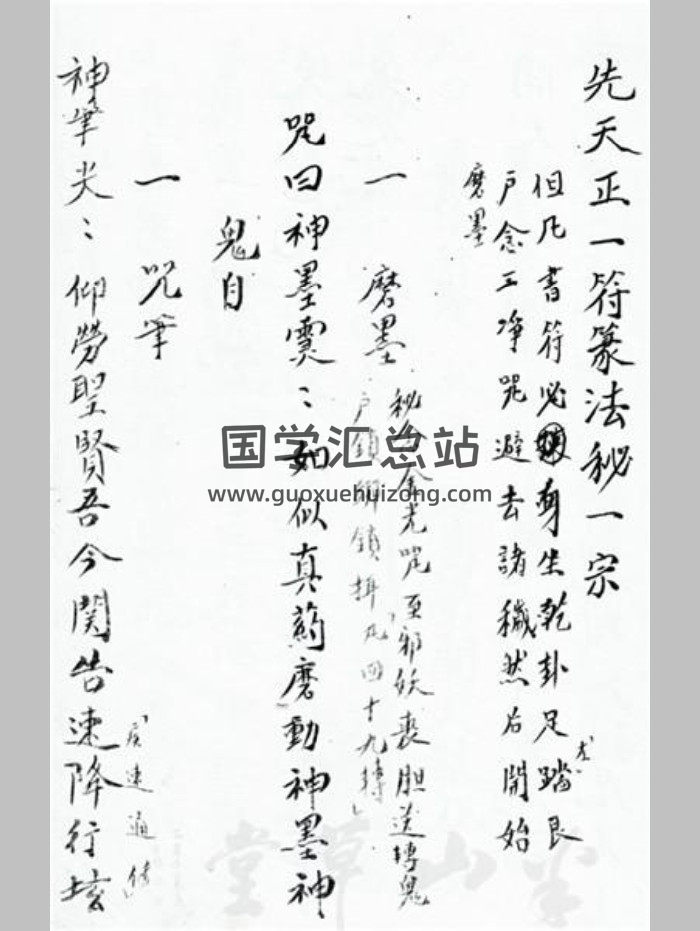 先天正一符篆法秘一宗
但凡書符必身坐乾卦足踏艮
戶念五净咒避去諸穢然后開始
磨墨
一 磨墨
秘令金光咒至邪妖喪胆送轉鬼
戶鎖 鎖 凡四十九轉
咒曰神墨灵：如似真药磨動神墨神
鬼自
一 咒筆
神筆尖：仰勞聖賢吾今関告速降行坛
速通
国学汇总站
www.guoxuehuizong.com
半山草堂